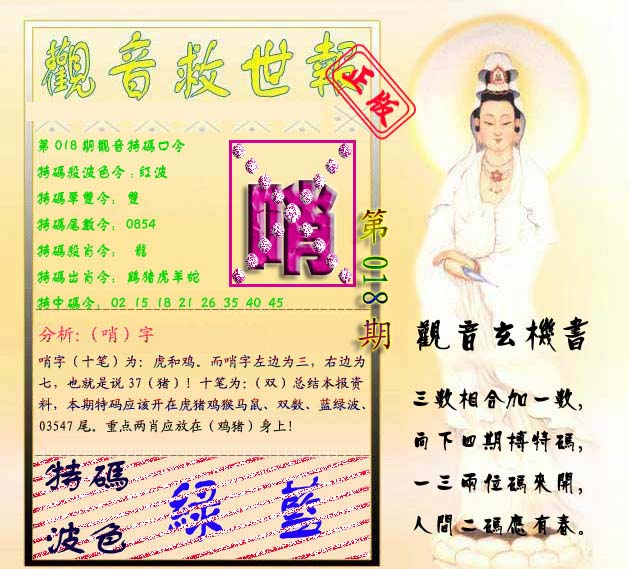 觀音救世報
正版
第018期觀音特碼口令
特碼殺波色令:紅波
特碼單雙令: 雙
特碼尾數令: 0854
特碼殺肖令: 龍
特碼出肖令: 鷄猪虎羊蛇
特中碼令: 02 15 18 21 26 35 40 45
哨
第018期
分析:（哨）字
哨字（十笔）为：虎和鸡。而哨字左边为三，右边为
七，也就是说37（猪）！十笔为：（双）总结本报资
料，本期特码应该开在虎猪鸡猴马鼠、双数、蓝绿波、
03547尾。重点两肖应放在（鸡猪）身上！
特碼
波色
綠 藍
觀音玄機書
三數相合加一數，
向下四期搏特碼，
一三兩位碼來開，
人間二碼應有春。